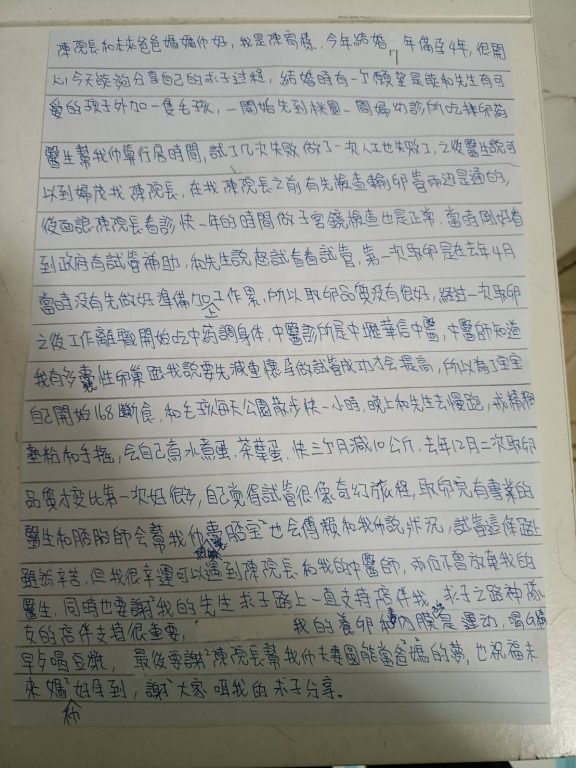 陳院長和未來爸爸媽媽你好，我是陳宥榛，今年結婚7年備孕4年，很開
心今天能夠分享自己的求子过程，結婚時有一个願望是能和先生有可
愛的孩子外加一隻毛孩，一開始先到桃園一間婦幼診所吃排卵药
醫生幫我们算行房時間，試了几次失敗做了一次人工也失敗了，之後醫生説可
以到婦茂找陳院長，在找陳院長之前有先檢查輸卵管兩边是通的，
後面認陳院長看診快一年的時間做子宮鏡檢查也是正常，當時剛好看
到政府有試管補助，和先生説想試看看試管，第一次取卵是在去年4月
當時没有先做好準備加上工作累，所以取卵品質没有很好，經过一次取卵
之後工作離職開始吃中药調身体，中醫診所是中壢華信中醫，中醫師知道
我有多囊性卵巢跟我説要先減重懷孕做試管成功才会提高，所以為了宝宝
自己開始168斷食，和毛孩每天公園散步快一小時，晚上和先生去慢跑，戒精緻
澱粉和手搖，会自己煮水煮蛋，茶葉蛋，快三个月減10公斤，去年12月二次取卵
品質才变比第一次好很多，自己覚得試管很像奇幻旅程，取卵完有專業的
醫生和胚胎師会幫我们養胚宝ˇ也会傳賴和我们説狀況，試管這条路
雖然辛苦，但我很幸運可以遇到陳院長和我的中醫師，兩位不曾放棄我的
醫生，同時也要謝ˇ我的先生求子路上一直支持陪伴我，求子之路神隊
友的陪伴支持很重要，我的養卵，運動，喝
早ˇ喝豆漿，最後要謝ˇ陳院長幫我们夫妻圆能當爸ˇ媽的夢，也祝福未
來媽ˇ们好孕到，謝ˇ大家听我的求子分享。